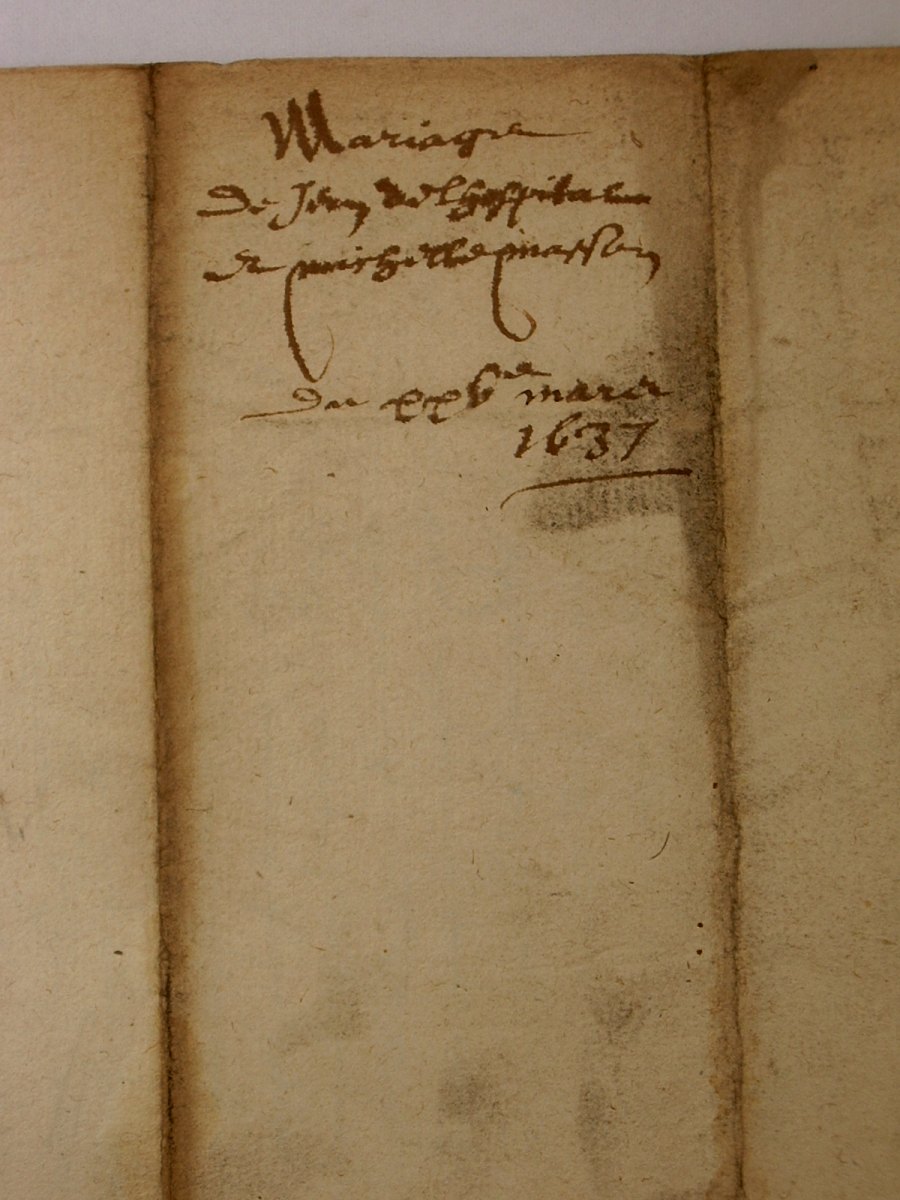 Mariage
De Jean de lhospital
et michelle masson
Du xxve mars
1637